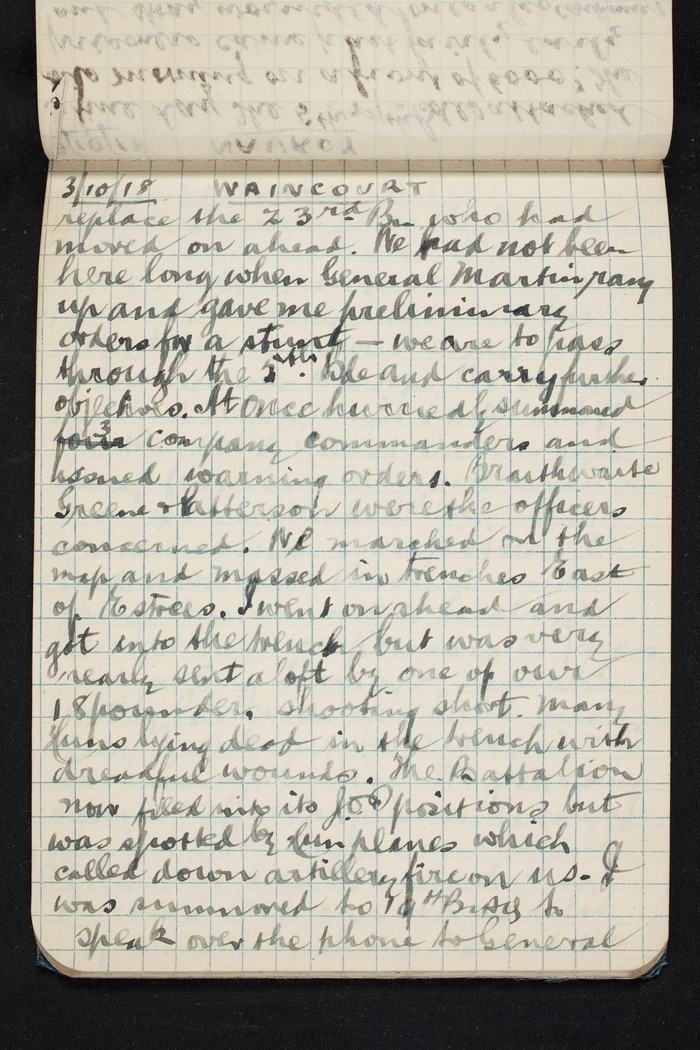 3/10/18 WAINCOURT
replace the 23rd Bn who had
moved on ahead. We had not been
here long when General Martin rang
up and gave me preliminary
orders for a stunt – we are to pass
through the 5th. Bde and carry further
objectives. At once hurriedly summoned
four 3 company commanders and
issued warning orders. Braithwaite
Greene & Patterson were the officers
concerned. We marched on the
map and massed in trenches East
of Estrees. I went on ahead and
got into the trench but was very
nearly sent aloft by one of our
18 pounders shooting short. Many
Huns lying dead in the trench with
dreadful wounds. The Battalion
now filed into its J.O.P positions but
was spotted by Hun planes which
called down artillery fire on us. I
was summoned to 19th BnHQ to
speak over the phone to General